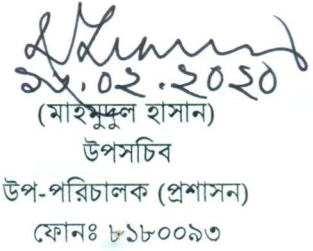 .০২.২০২০
(মাহমুদুল হাসান)
উপসচিব
উপ-পরিচালক (প্রশাসন)
ফোনঃ ৮১৮০০৯৩